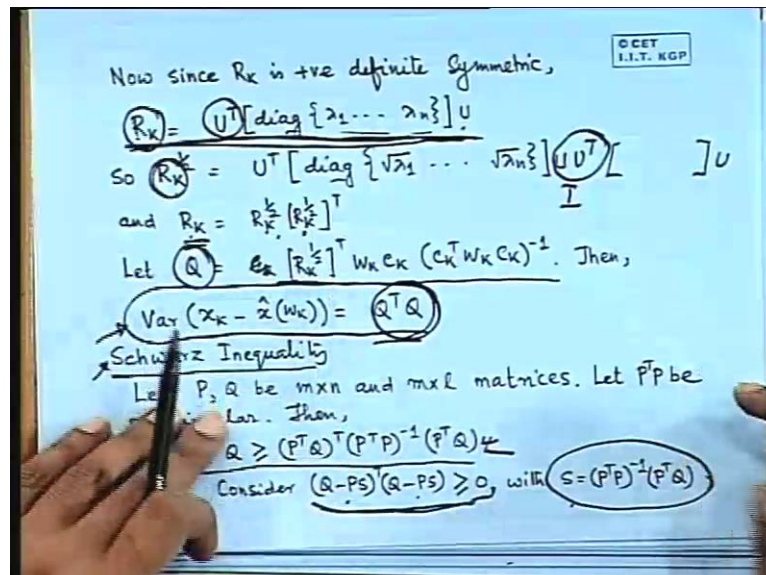 © CET
I.I.T. KGP
Now since Rₖ is +ve definite Symmetric,
Rₖ = Uᵀ [diag {λ₁ ... λₙ}] U
So Rₖ^½ = Uᵀ [diag {√λ₁ ... √λₙ}] U Uᵀ [ ] U
I
and Rₖ = Rₖ^½ [Rₖ^½]ᵀ
Let Q = [Rₖ^½]ᵀ Wₖ Cₖ (Cₖᵀ Wₖ Cₖ)⁻¹. Then,
Var (xₖ - x̂(Wₖ)) = QᵀQ
Schwarz Inequality
P, Q be m×n and m×l matrices. Let PᵀP be
Then,
Q ≥ (PᵀQ)ᵀ (PᵀP)⁻¹ (PᵀQ)
Consider (Q-PS)ᵀ(Q-PS) ≥ 0, with S = (PᵀP)⁻¹(PᵀQ)